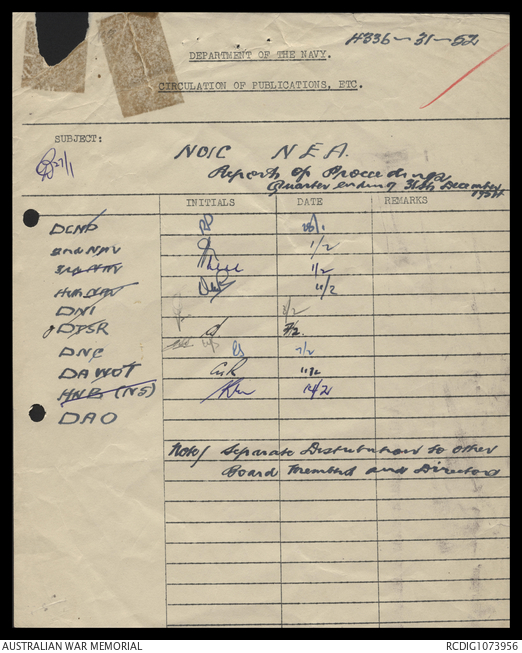 H336-31-52
DEPARTMENT OF THE NAVY.
CIRCULATION OF PUBLICATIONS, ETC.
SUBJECT:
27/1
NOIC N.E.A.
Reports of Proceedings
Quarter ending 31st December
INITIALS DATE REMARKS
DCNP 28/1
2nd NAV 1/2
3rd NAV 1/2
11/2
DNI 2/2
DPSR 7/2.
DNC 7/2
DAWOT 11/2
HNB (NS) 14/2
DAO
Note/ Separate Distribution to other
Board Members and Directors
AUSTRALIAN WAR MEMORIAL
RCDIG1073956